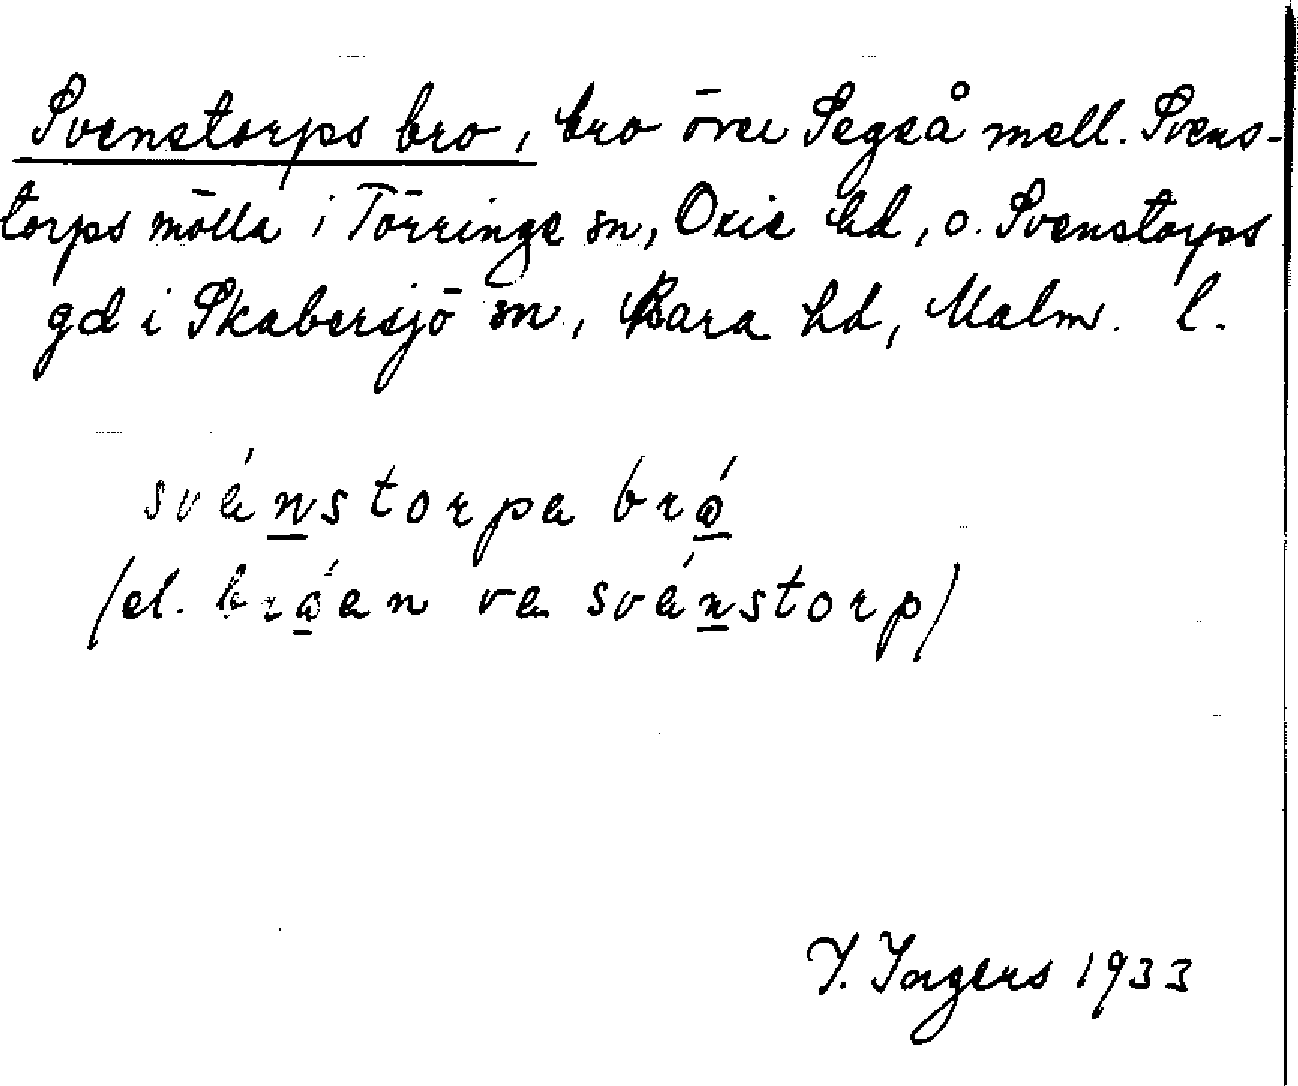 Svenstorps bro, bro över Segeå mell. Svens-
torps mölla i Törringe sn, Oxie hd, o. Svenstorps
gd i Skabersjö sn, Bara hd, Malm. l.
svánstorpa brǫ́
(el. brǫ́en va svánstorp)
I. Ingers 1933